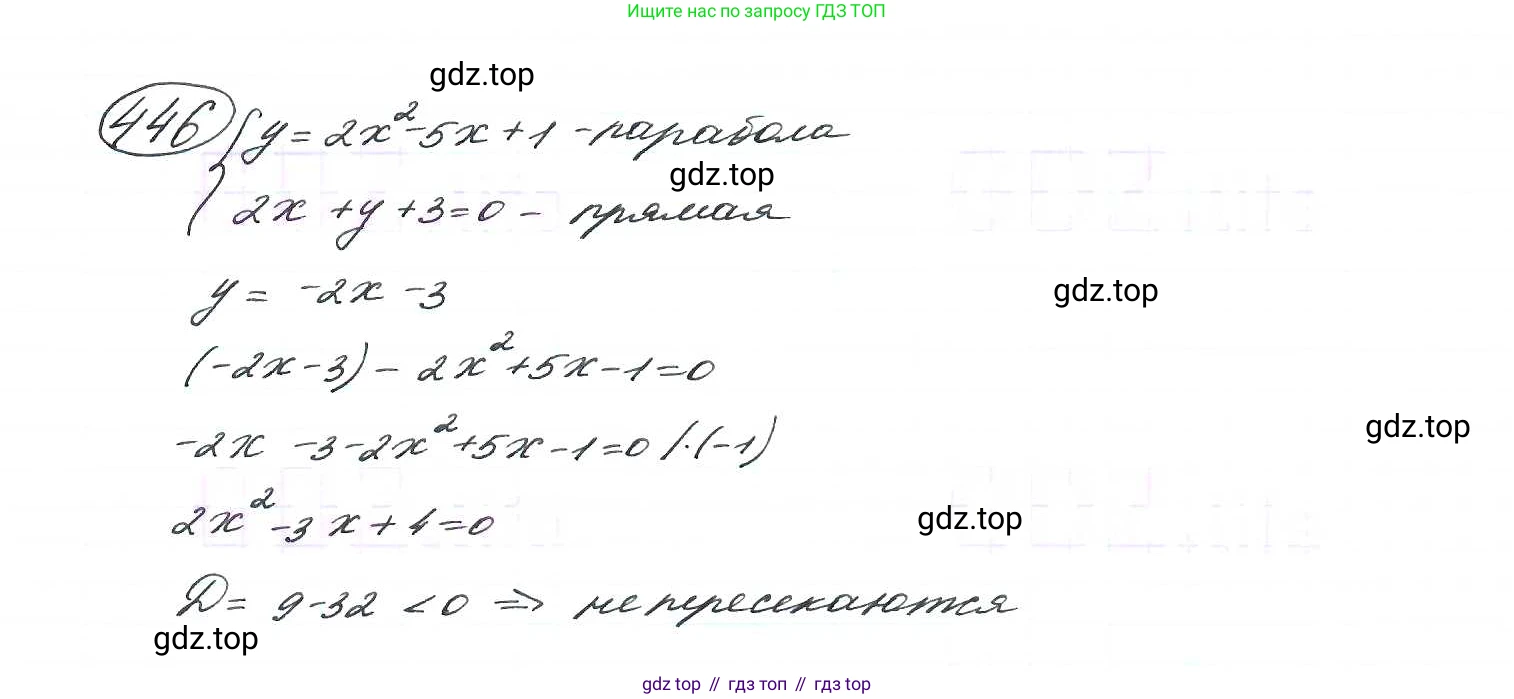 Ищите нас по запросу ГДЗ ТОП
gdz.top
446 { y = 2x² - 5x + 1 - парабола
gdz.top
2x + y + 3 = 0 - прямая
y = -2x - 3
gdz.top
(-2x - 3) - 2x² + 5x - 1 = 0
-2x - 3 - 2x² + 5x - 1 = 0 /·(-1)
gdz.top
2x² - 3x + 4 = 0
gdz.top
D = 9 - 32 < 0 => не пересекаются
gdz.top
gdz top // гдз топ // гдз top